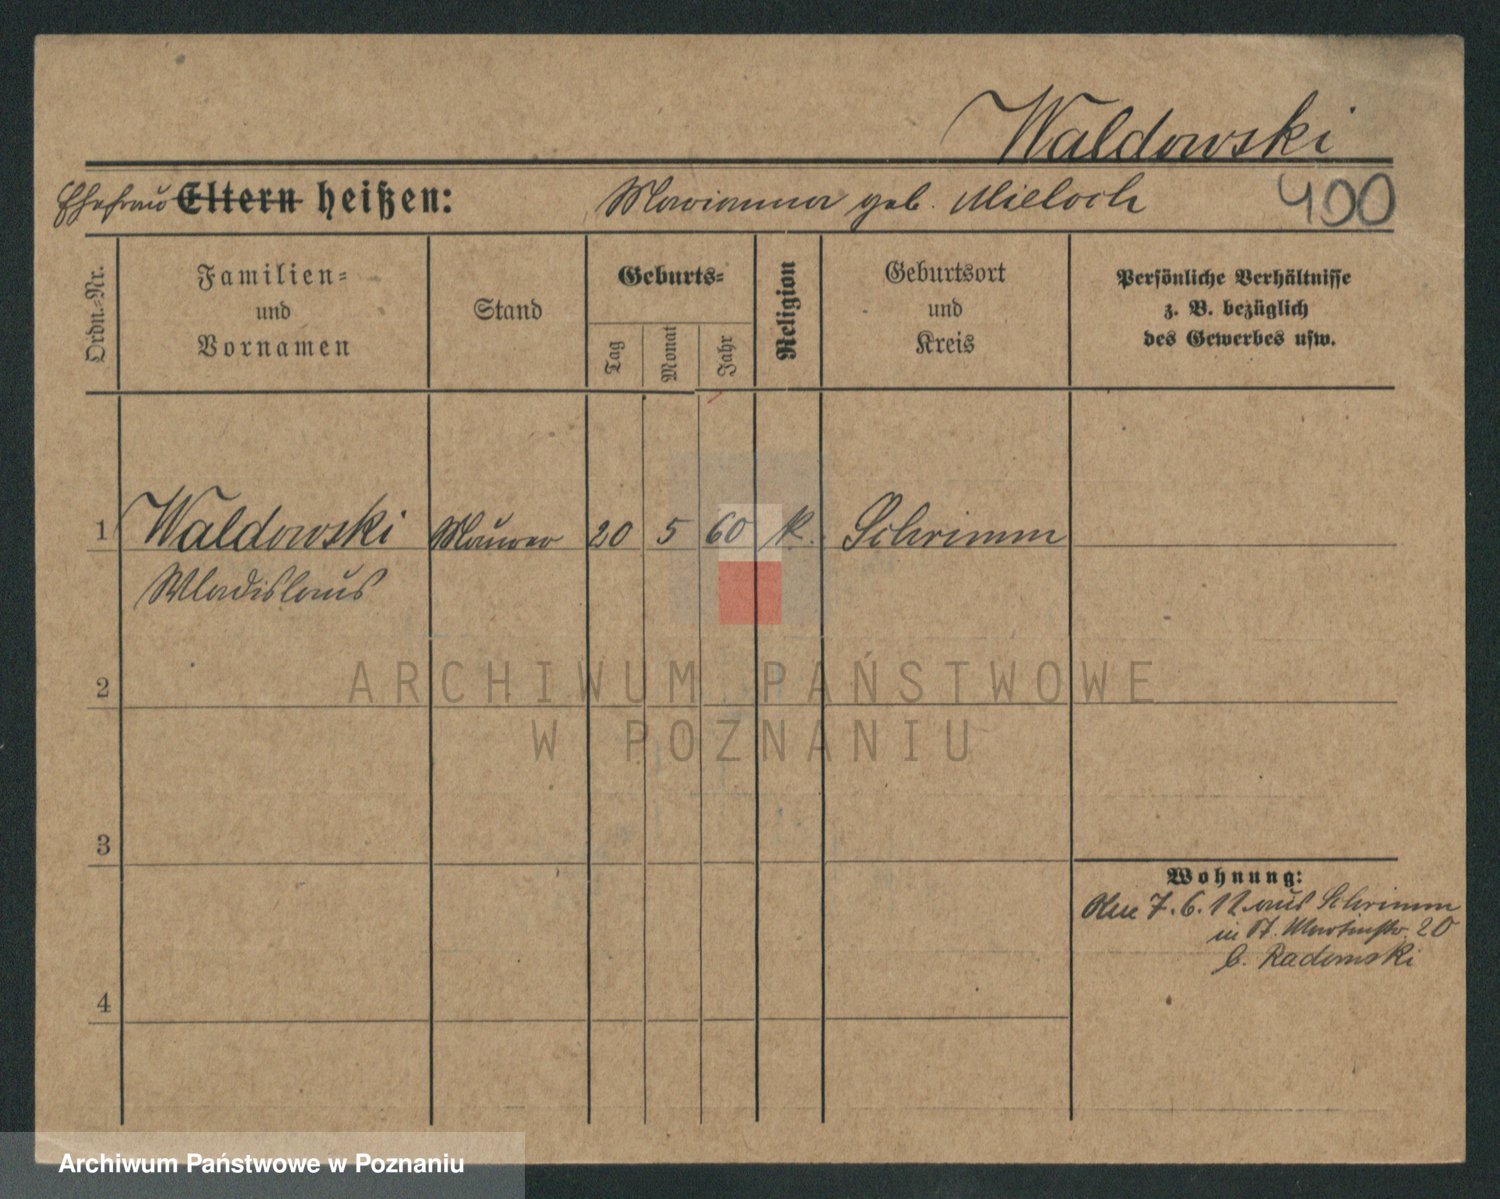 Waldowski
Ehefrau Eltern heißen: Marianna geb. Mieloch 400
Ordn.-Nr.
Familien-
und
Vornamen
Stand
Geburts-
Tag
Monat
Jahr
Religion
Geburtsort
und
Kreis
Persönliche Verhältnisse
z. B. bezüglich
des Gewerbes usw.
1 Waldowski Maurer 20 5 60 k. Schrimm
Wladislaus
2
3
4
Wohnung:
7. 6. 12 aus Schrimm
in St. Martinstr. 20
b. Radomski
ARCHIWUM PAŃSTWOWE
W POZNANIU
Archiwum Państwowe w Poznaniu